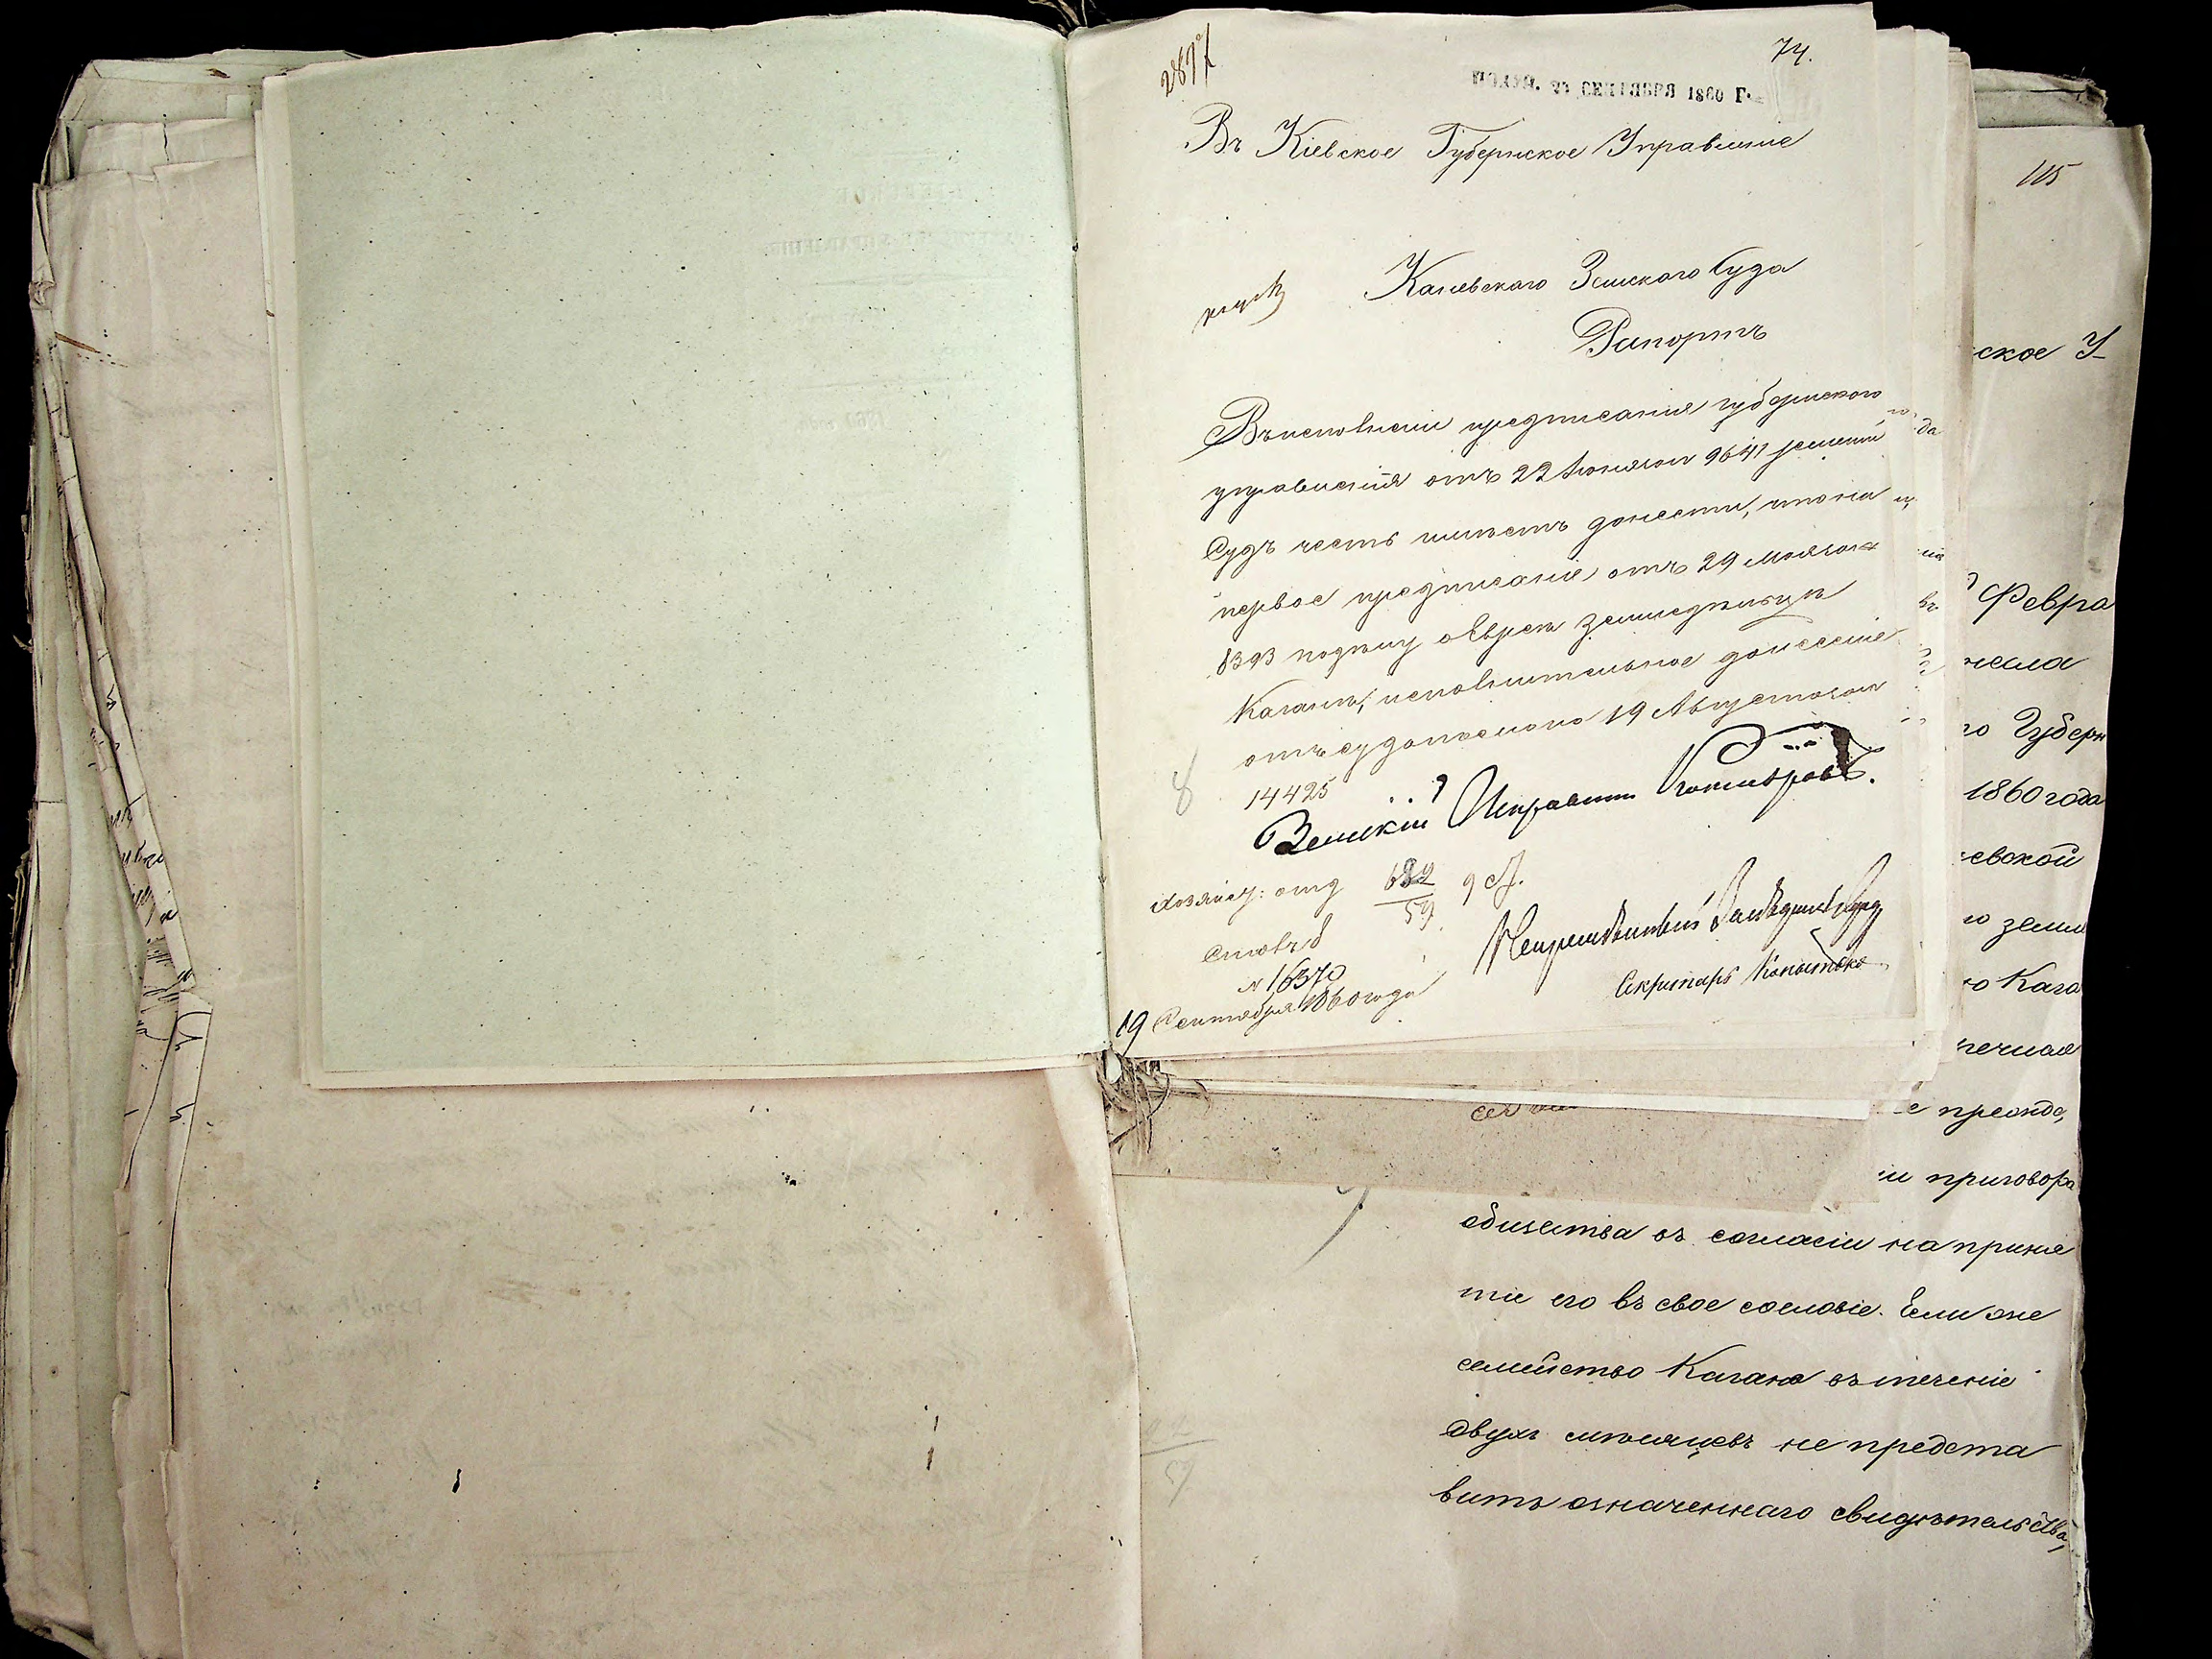 74.
ПОЛУЧ. СЕНТЯБРЯ 1860 Г.
Въ Кіевское Губернское Управленіе
Каневскаго Земскаго Суда
Рапортъ
Въ исполненіи предписанія губернскаго
управленія отъ 22 Іюня за № 9641 земскій
Судъ честь имѣетъ донести, что на
первое предписаніе отъ 29 Мая за №
8393 по дѣлу о Евреѣ земледѣльцѣ
Каганѣ, исполнительное донесеніе
отъ суда послано 19 Августа за №
14425
Земскій Исправникъ
Хозяйст: отд 682/59 9 Я.
Столъ 8
№ 16370
19 Сентября 1860 года
Непремѣнный Засѣдатель
Секретарь
115
ское У
Февра
Губерн
1860 года
евской
земле
Кага
приговора
общества въ согласіи на приня
тіе его въ свое сословіе. Если же
семейство Кагана въ теченіе
двухъ мѣсяцевъ не предста
витъ означеннаго свидѣтельства,